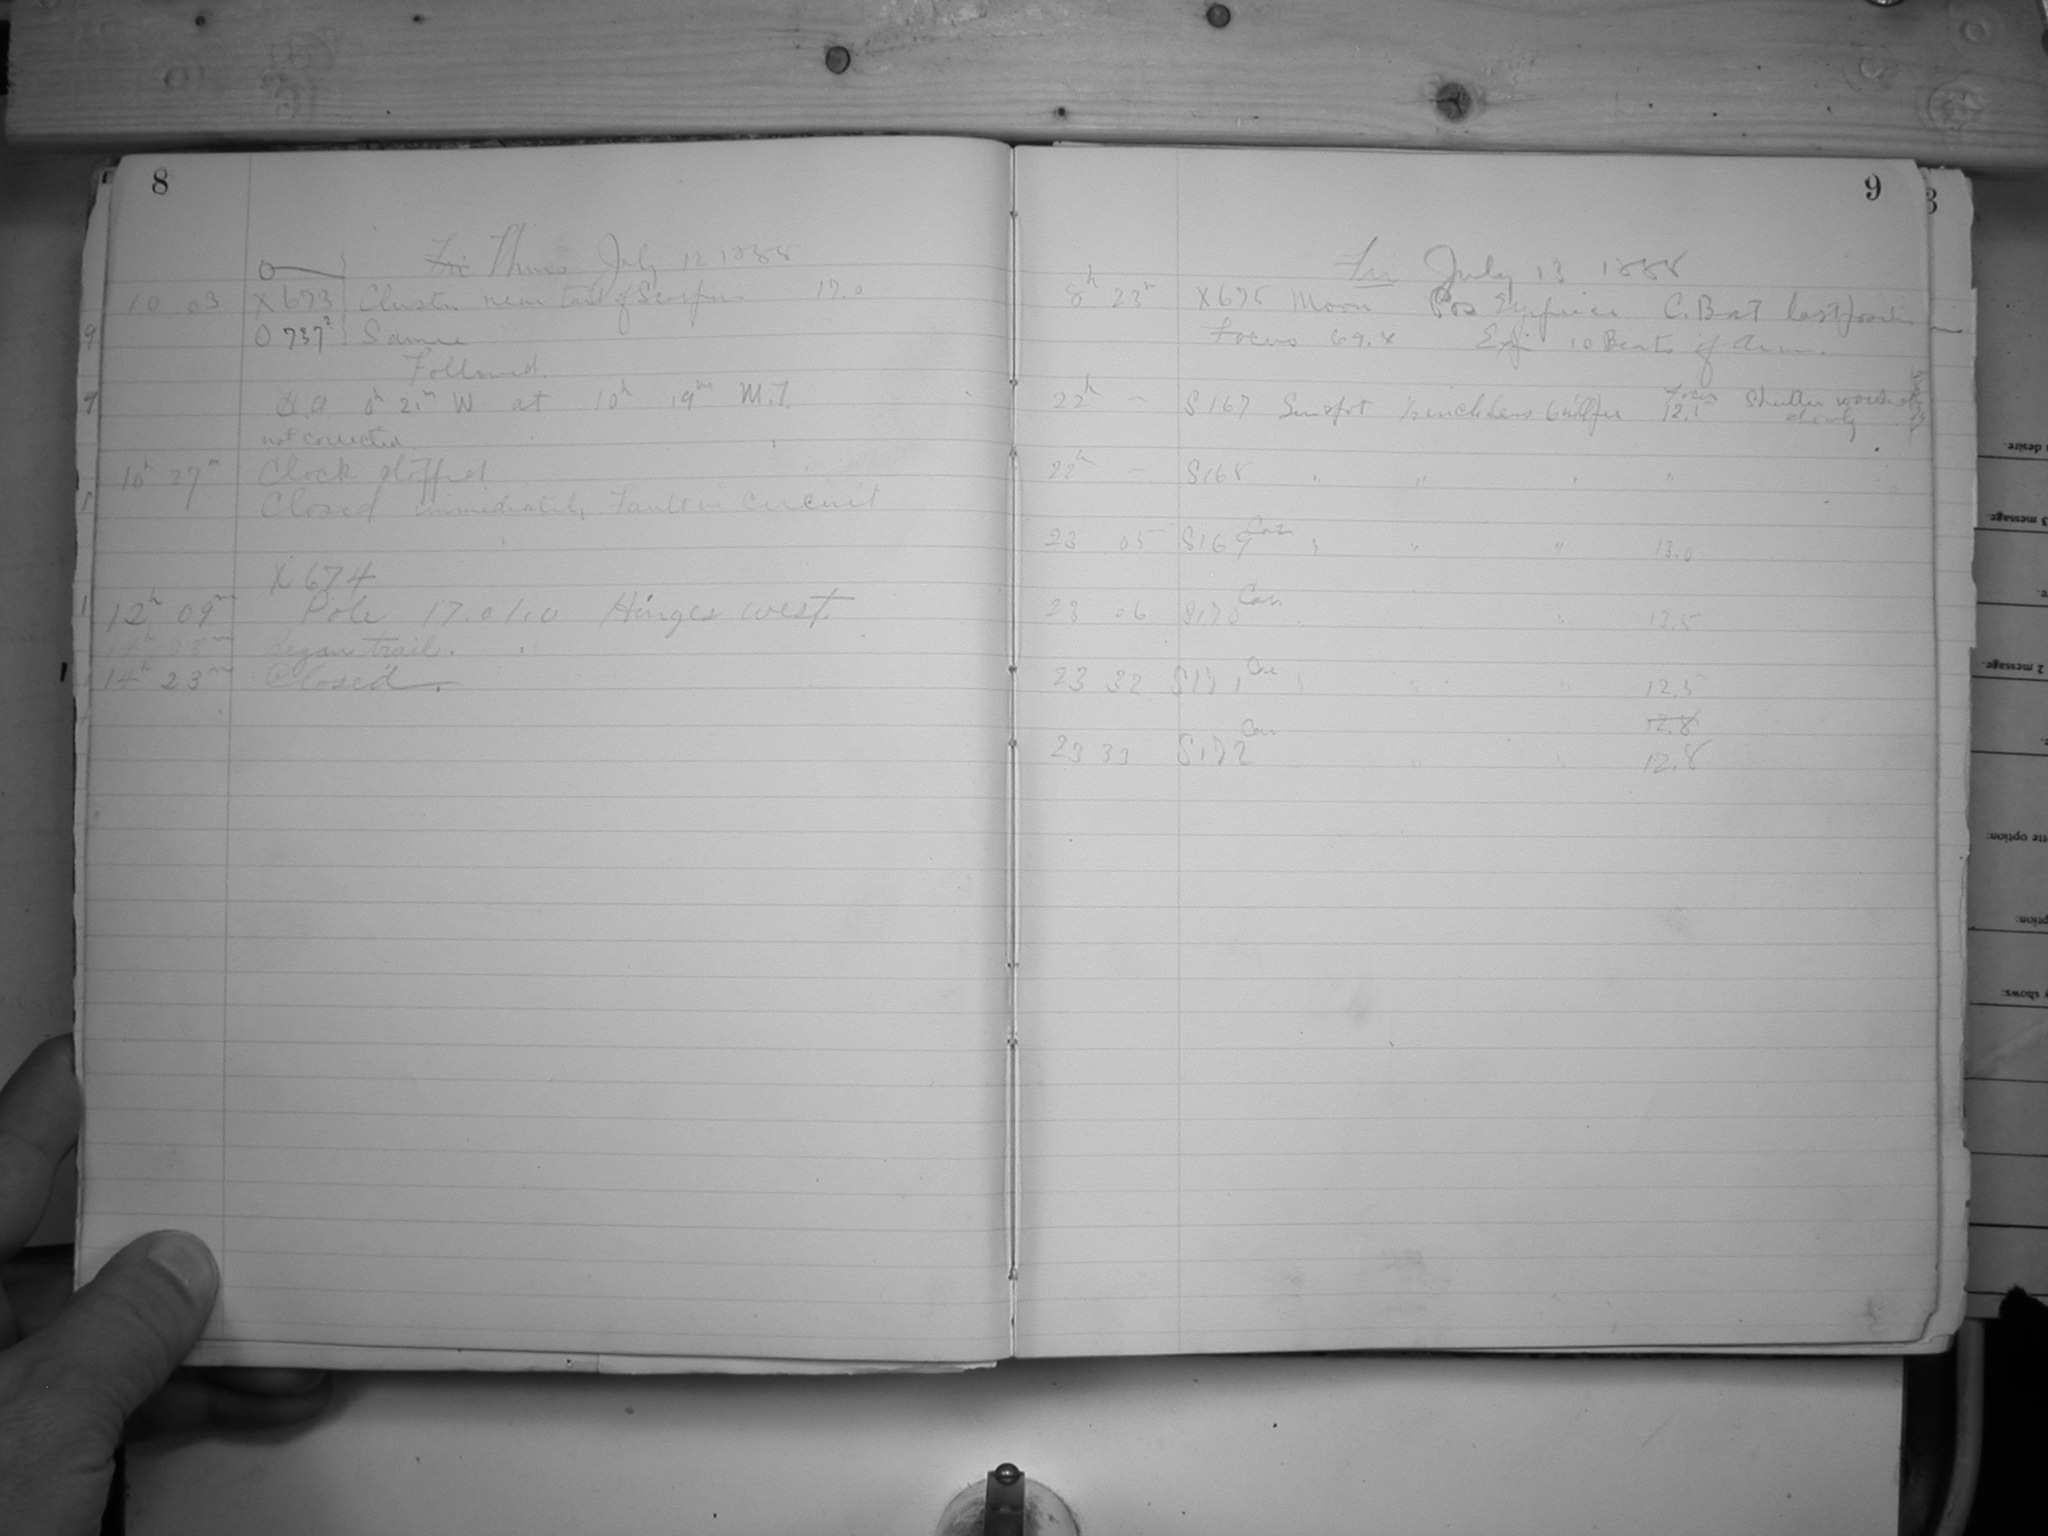 8
Fri Thurs July 12 1888
10 03 X673 Cluster near tail of Scorpion 17.0
0 737² Same
Followed.
H.A 0ʰ 21ᵐ W at 10ʰ 19ᵐ M.T.
not corrected
10ʰ 27ᵐ Clock stopped
Closed immediately Fault in circuit
X 674
12ʰ 09ᵐ Pole 17.0/1.0 Hinges west.
25ᵐ Began trail.
14ʰ 23ᵐ Closed.
9
Fri July 13 1888
8ʰ 23ᵐ X675 Moon Pos Eyepiece C. B at last
Focus 69.8 Exp 10 Beats of
22ʰ — S167 Sunspot Focus 12.5 Shutter worked slowly
22ʰ — S168 " " " "
23 05 S169 Can " " " 13.0
23 06 S170 Can " " 12.5
23 32 S171 Can " " " 12.5
12.8
23 33 S172 Can " " " 12.8
3
desire.
3 message.
2 message.
option:
option:
shows: